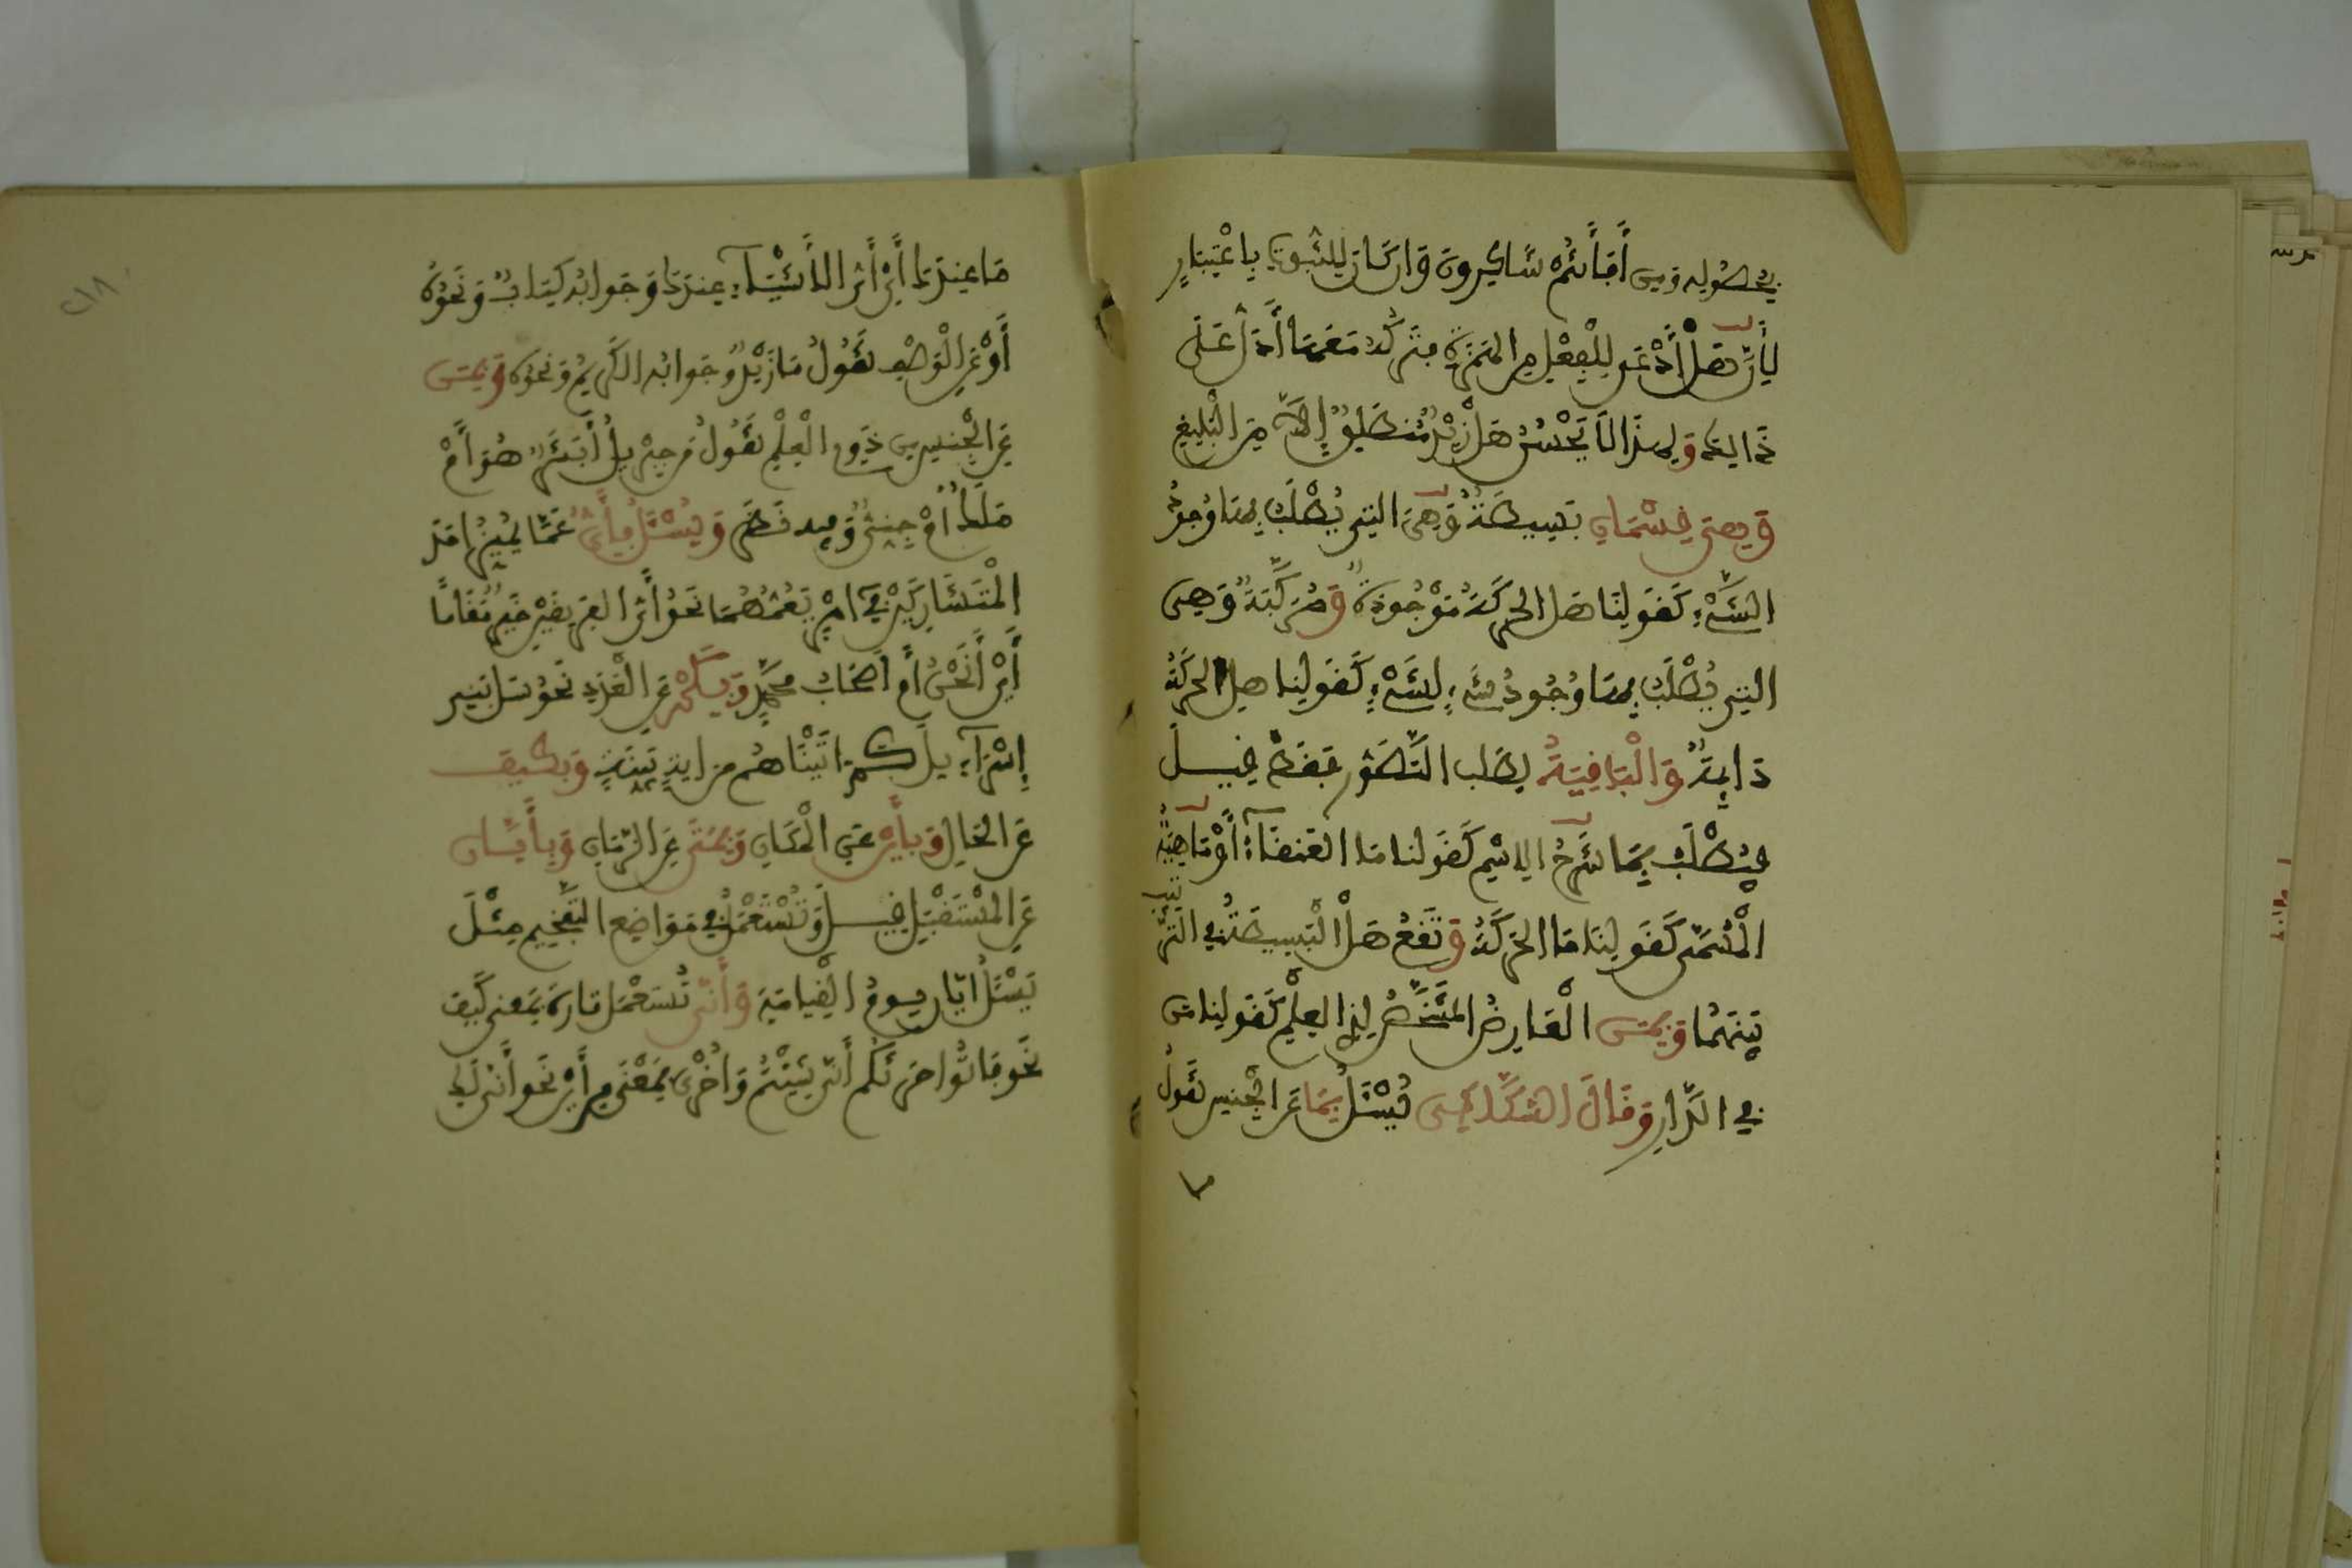 حصوله ومن أفأنتم شاكرون وان كان للثبوت باعتبار
لأن هل أدعى للفعل من الهمزة فتركه معها أدل على
ذالك ولهذا لا يحسن هل زيد منطلق إلا من البليغ
وهي قسمان بسيطة وهي التي يطلب بها وجود
الشيء كقولنا هل الحركة موجودة ومركبة وهي
التي يطلب بها وجود شيء لشيء كقولنا هل الحركة
دايمة والباقية لطلب التصور فقط قيل
فيطلب بما شرح الاسم كقولنا ما العنقاء أو ماهية
المسمى كقولنا ما الحركة وتقع هل البسيطة في الترتيب
بينهما وبمن العارض المشخص لذي العلم كقولنا من
في الدار وقال السكاكي يسئل بما عن الجنس تقول
ما عندك أي أي الأشياء عندك وجوابه كتاب ونحوه
أو عن الوصف تقول ما زيد وجوابه الكريم ونحوه وبمن
عن الجنس من ذوي العلم تقول من جبريل أبشر هو أم
ملك أم جني وفيه نظر ويسئل بأي عما يميز احد
المتشاركين في امر يعمهما نحو أي الفريقين خير مقاما
أي أنحن أم أصحاب محمد وبكم عن العدد نحو سل بني
إسراءيل كم اتيناهم من اية بينة وبكيف
عن الحال وبأين عن المكان وبمتى عن الزمان وبأيان
عن المستقبل قيل وتستعمل في مواضع التفخيم مثل
يسئل ايان يوم القيامة وأنى تستعمل تارة بمعنى كيف
نحو فاتوا حرثكم أنى شيتم وأخرى بمعنى من أين نحو أنى لك
٢١٨